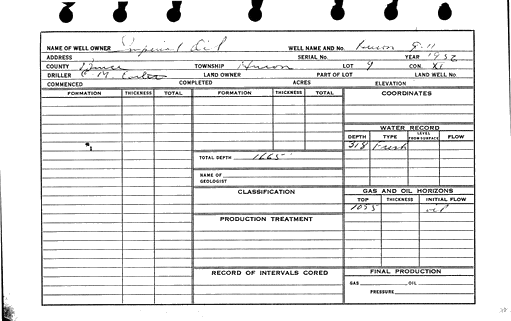 NAME OF WELL OWNER Imperial Oil WELL NAME AND No. Huron 9-11
ADDRESS SERIAL No. YEAR 1952
COUNTY Bruce TOWNSHIP Huron LOT 9 CON. XI
DRILLER C. M. LAND OWNER PART OF LOT LAND WELL No.
COMMENCED COMPLETED ACRES ELEVATION
FORMATION THICKNESS TOTAL FORMATION THICKNESS TOTAL COORDINATES
WATER RECORD
DEPTH TYPE LEVEL FROM SURFACE FLOW
518 Fresh
TOTAL DEPTH 1665
NAME OF GEOLOGIST
CLASSIFICATION GAS AND OIL HORIZONS
TOP THICKNESS INITIAL FLOW
1055 oil
PRODUCTION TREATMENT
RECORD OF INTERVALS CORED FINAL PRODUCTION
GAS OIL
PRESSURE